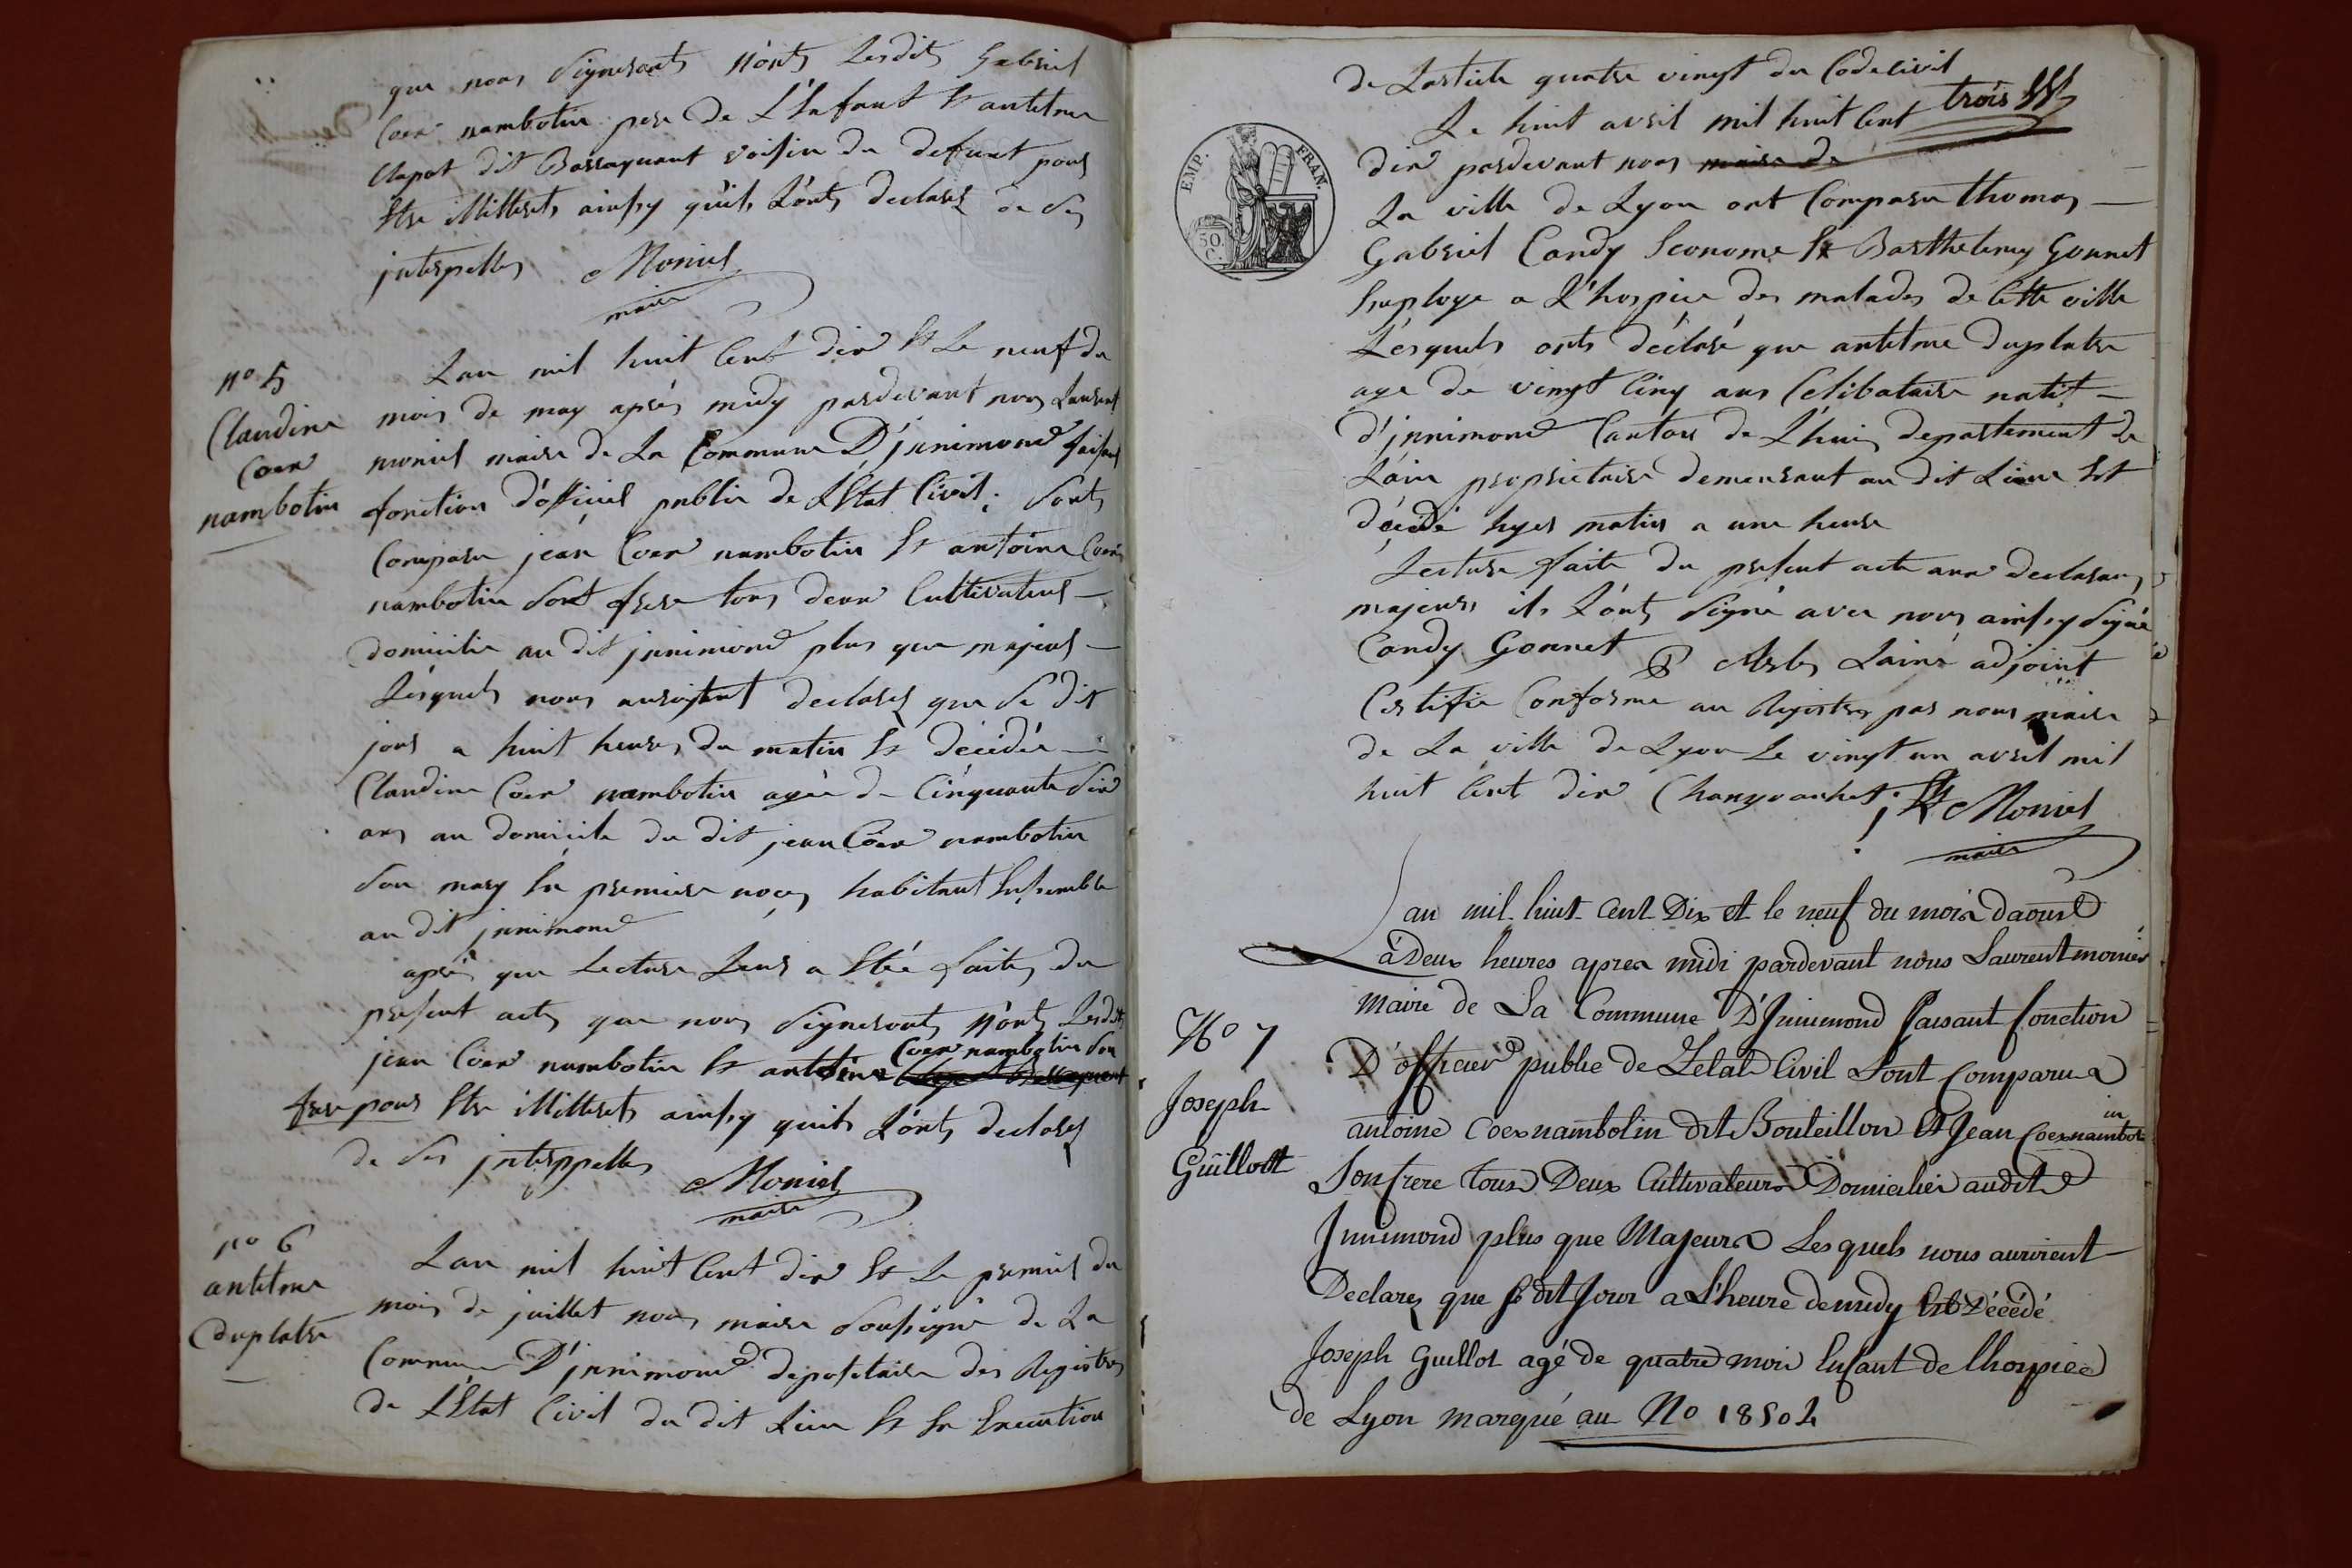 que nous signeront n'ont lesdits gabriel
Coex nambotin pere de L'Enfant Et antelme
Clapot dit Bassaquant voisin du defunt pour
Etre illitteret ainssy qu'ils L'ont declarez de ses
interpelles Monier
maire
n° 5
Claudine
Coex
nambotin
Lan mil huit Cent dix Et Le neuf du
mois de may après midy pardevant nous Laurent
monier maire de La Commune D'jnnimond faisant
fonction d'officier public de LEtat Civil. Sont
Comparu jean Coex nambotin Et antoine Coex
nambotin Sont frere tous deux Cultivateurs
domicilie au dit jnnimond plus que majeur
Lesquels nous auroient declarez que Ce dit
jour a huit heures du matin Et décédée
Claudine Coex nambotin agée de Cinquante six
ans au domicile du dit jean Coex nambotin
Son mary En premiere noces habitant Ensemble
au dit jnnimond
après que Lecture Leur a Eté faites du
present actes que nous signeront n'ont Lesdits
jean Coex nambotin Et antoine Coex nambotin Son
frere pour Etre illitteret ainssy quils L'ont declarez
de ses interppelles Monier
maire
n° 6
antelme
duplatre
Lan mil huit Cent dix Et Le premier du
mois de juillet nous maire Soussigné de La
Commune D'jnnimond depositaire des Registres
de LEtat Civil du dit Lieu Et En Execution
de Larticle quatre vingt du Code Civil
trois
Le huit avril mil huit Cent
dix pardevant nous maire de
EMP. FRAN.
50. C.
La ville de Lyon ont Comparu thomas
Gabriel Candy Econome Et Barthelemy Gonnet
Employe a L'hospice des malades de Cette ville
Lesquels ont déclaré que antelme duplatre
age de vingt Cinq ans Celibataire natif
d'jnnimond Canton de L'huis departement de
L'ain proprietaire demeurant au dit Lieu Est
décédé hyer matin a une heure
Lecture faite du present acte aux declarans
majeurs ils L'ont Signé avec nous ainssy Signé
Candy Gonnet Lainé adjoint
Certifie Conforme au Registres par nous maire
de La ville de Lyon Le vingt un avril mil
huit Cent dix Monier
maire
N° 7
Joseph
Guillott
Lan mil huit cent Dix et le neuf du mois daoust
à Deux heures apres midi pardevant nous Laurent monier
maire de La Commune D'Jnnimond faisant fonction
D'officier public de Letat Civil Sont Comparus
antoine Coexnambotin dit Bouteillon Et Jean Coexnambot in
Son frere tous Deux Cultivateurs Domicilier audit
Jnnimond plus que Majeurs Lesquels nous auroient
Declarez que Ce dit Jour a L'heure de midy Est Décédé
Joseph Guillot agé de quatre mois Enfant de lhospice
de Lyon marqué au No 18504